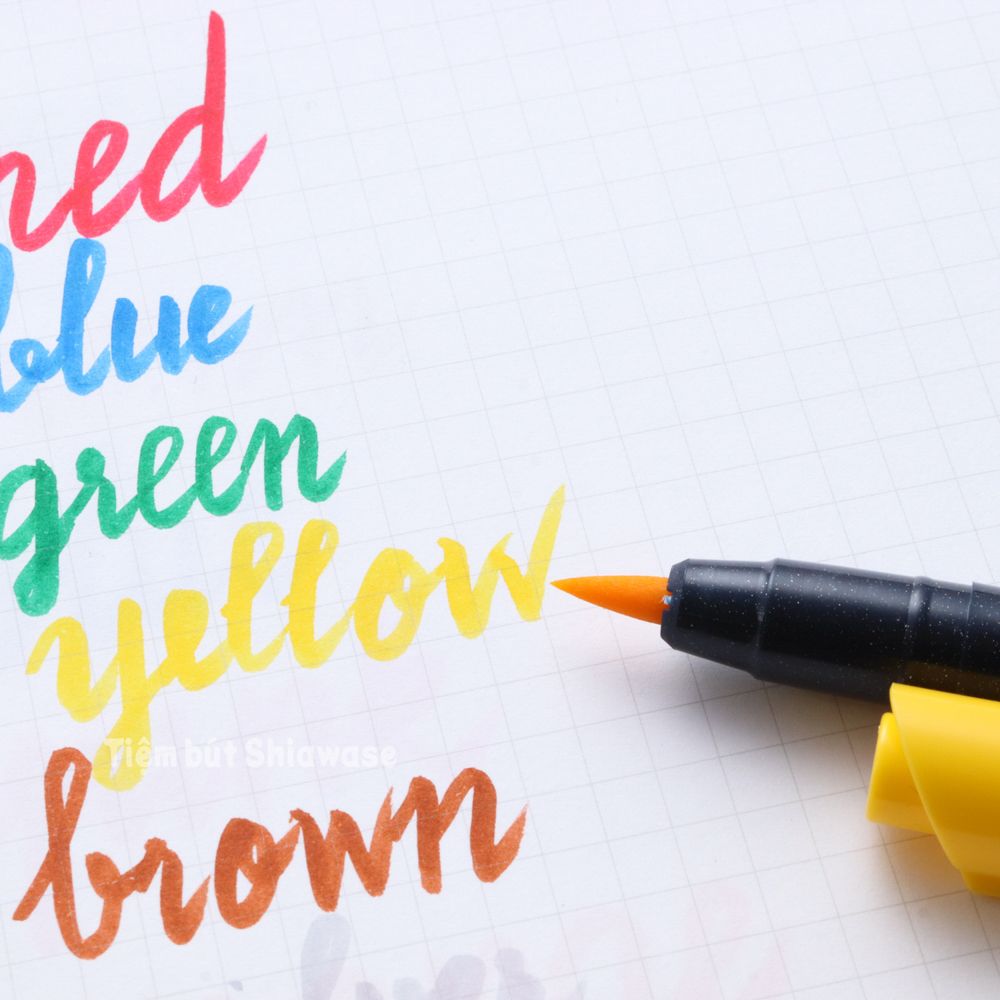 red
blue
green
yellow
Tiệm bút Shiawase
brown